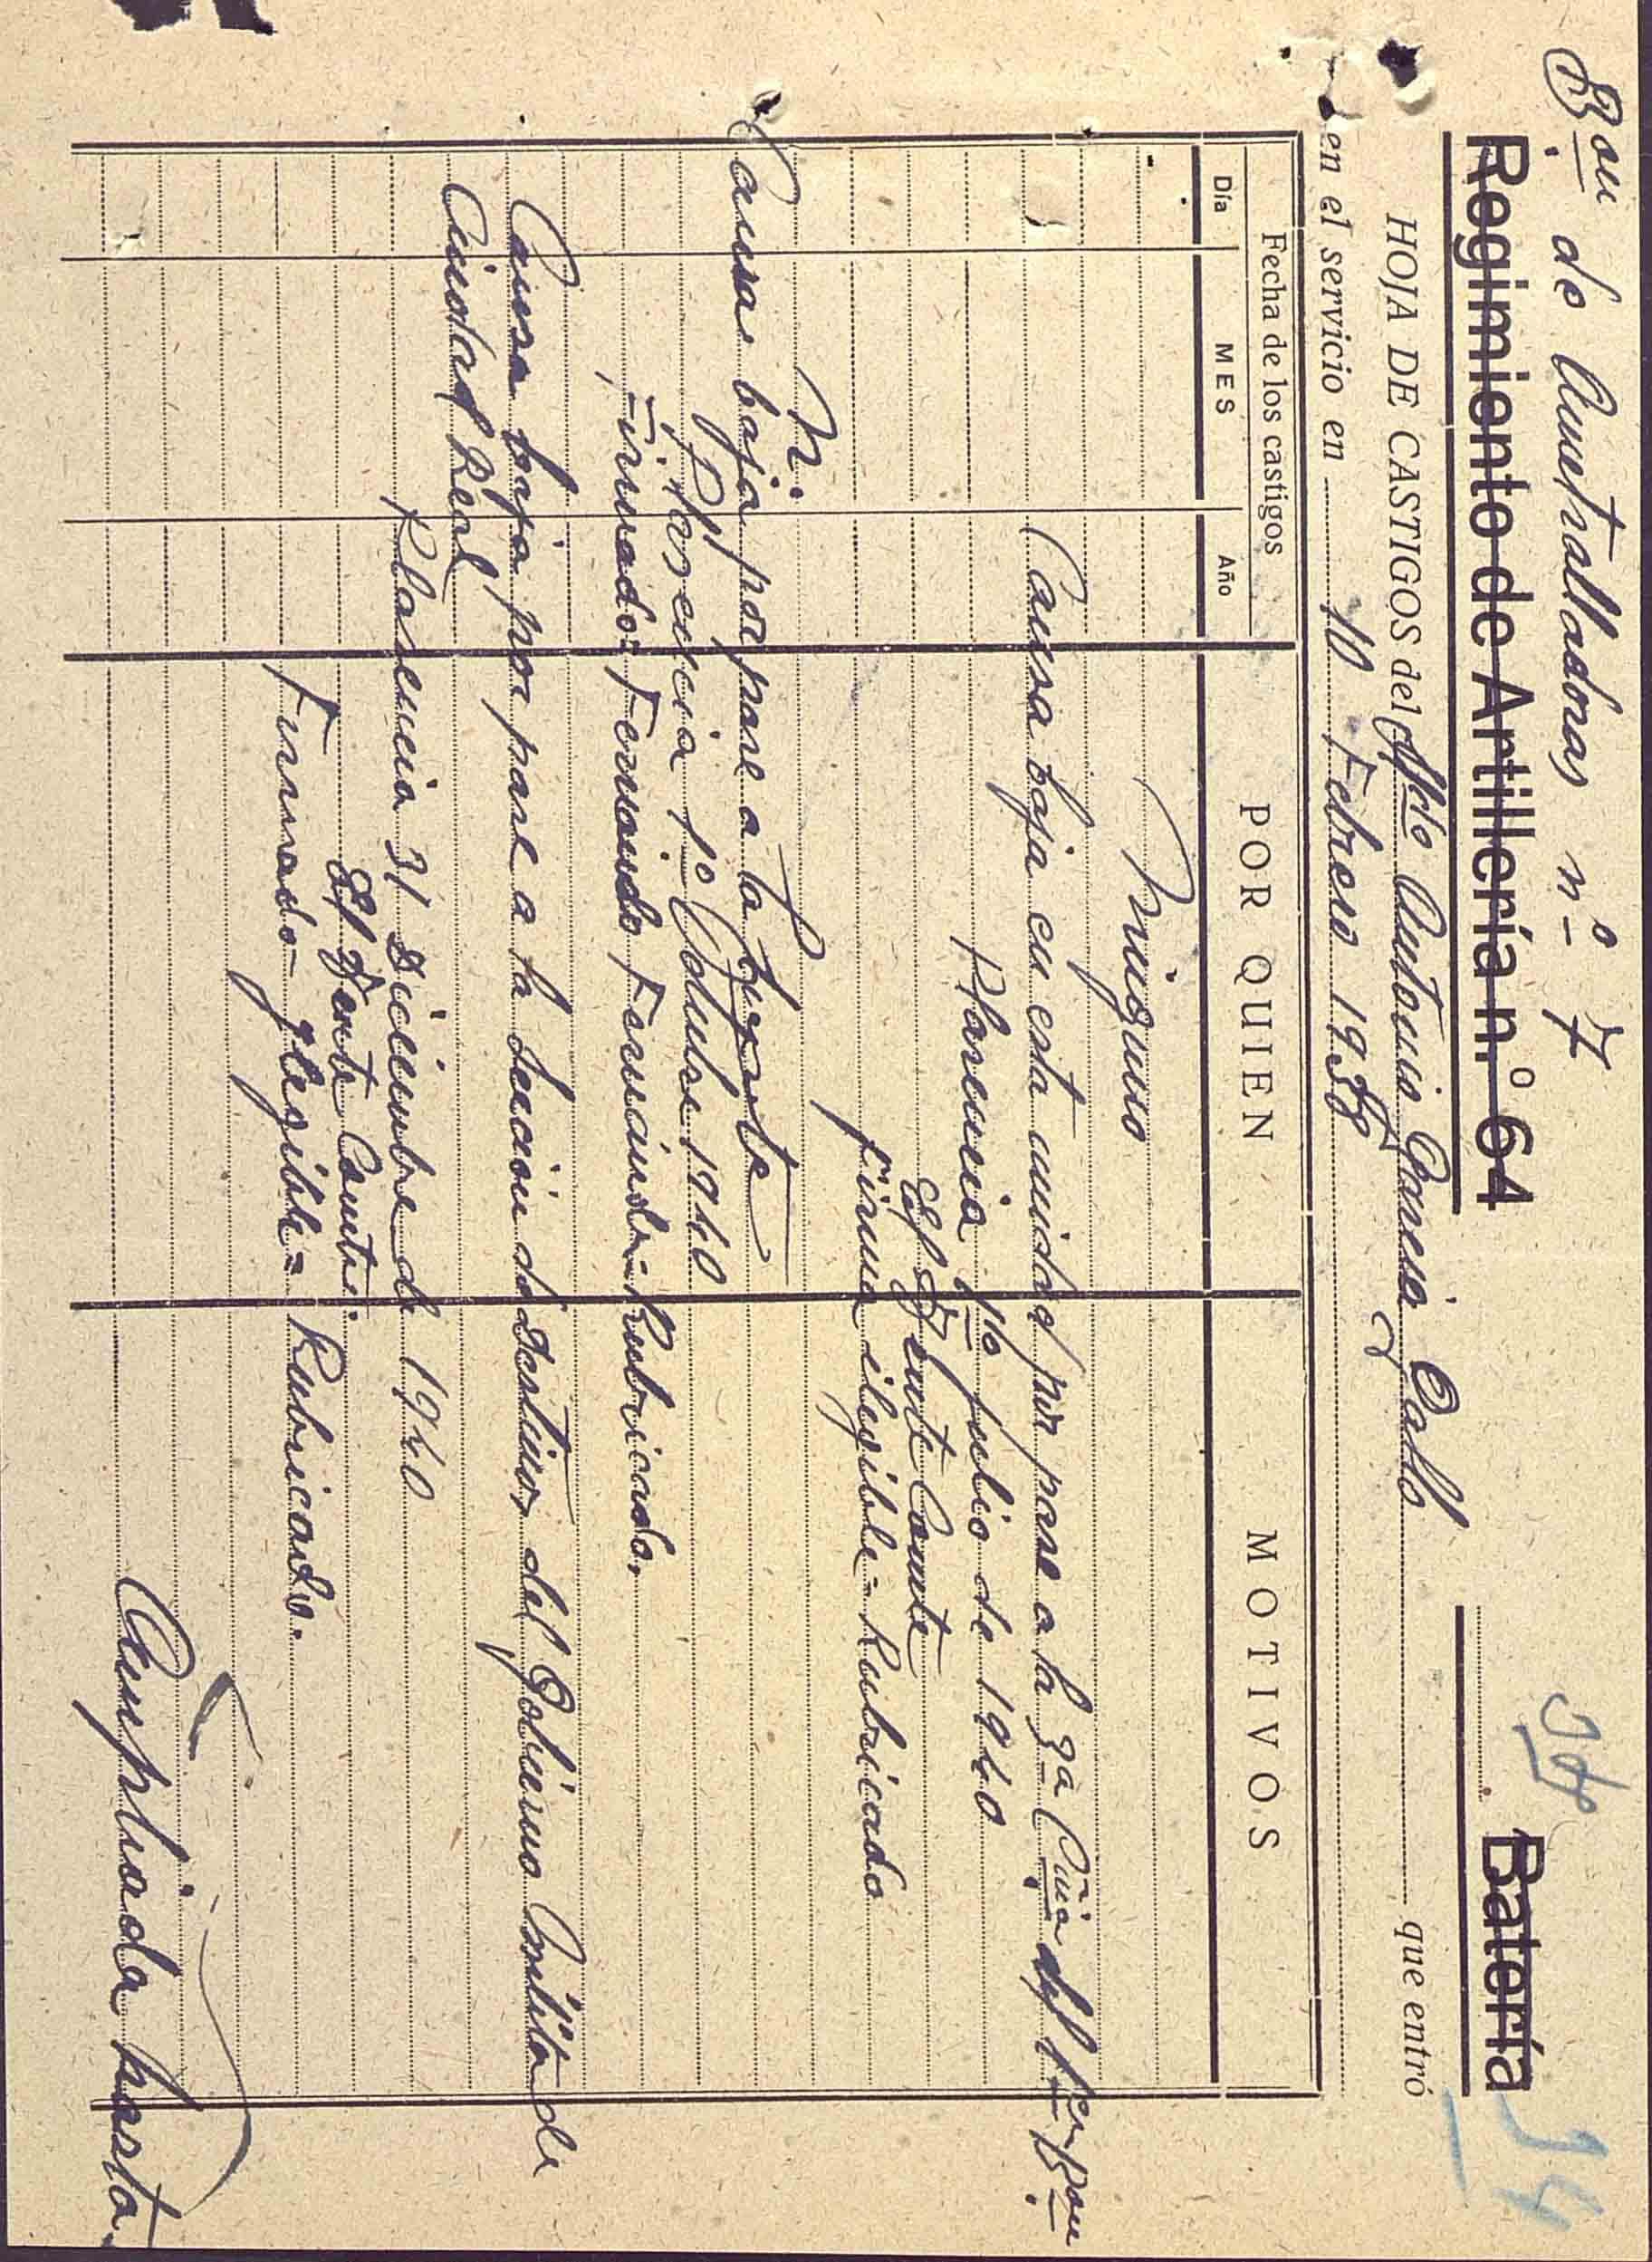 Bon de Ametralladoras nº 7
Regimiento de Artillería n.º 64
Batería
HOJA DE CASTIGOS del Sdo Antonio García Gallo que entró
en el servicio en 10 Febrero 1938
Fecha de los castigos
Día MES Año POR QUIEN MOTIVOS
Ninguno
Causa baja en esta unidad por pase a la 3ª Cñia del 1er Bon
Plasencia 16 Julio de 1940
El Tente Comte
Firma ilegible = Rubricado
Causa baja por pase a la
Plasencia 1º Octubre 1940
Firmado: Fernando Fernández = Rubricado.
Causa baja por pase a la Sección de destinos del Gobierno Militar de
Ciudad Real
Plasencia 31 Diciembre de 1940
El Tente Comte.
Firmado = Ilegible = Rubricado.
Ampliada hasta